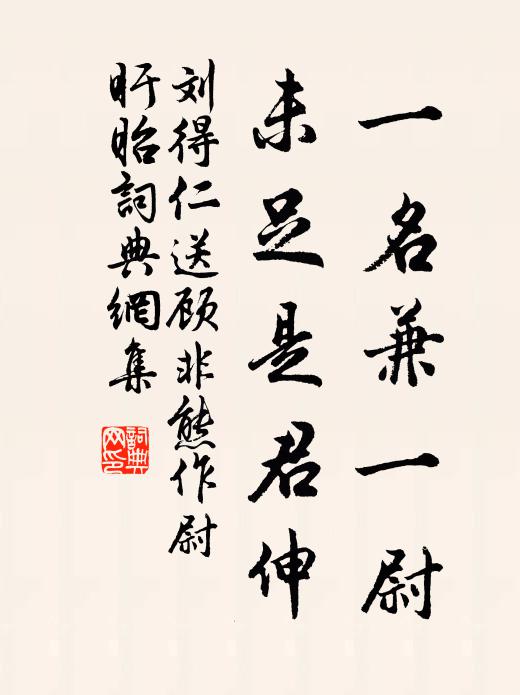 一名兼一尉
未足是君伸
刘得仁送顾非熊作尉
盱眙詞典網集
詞典網印